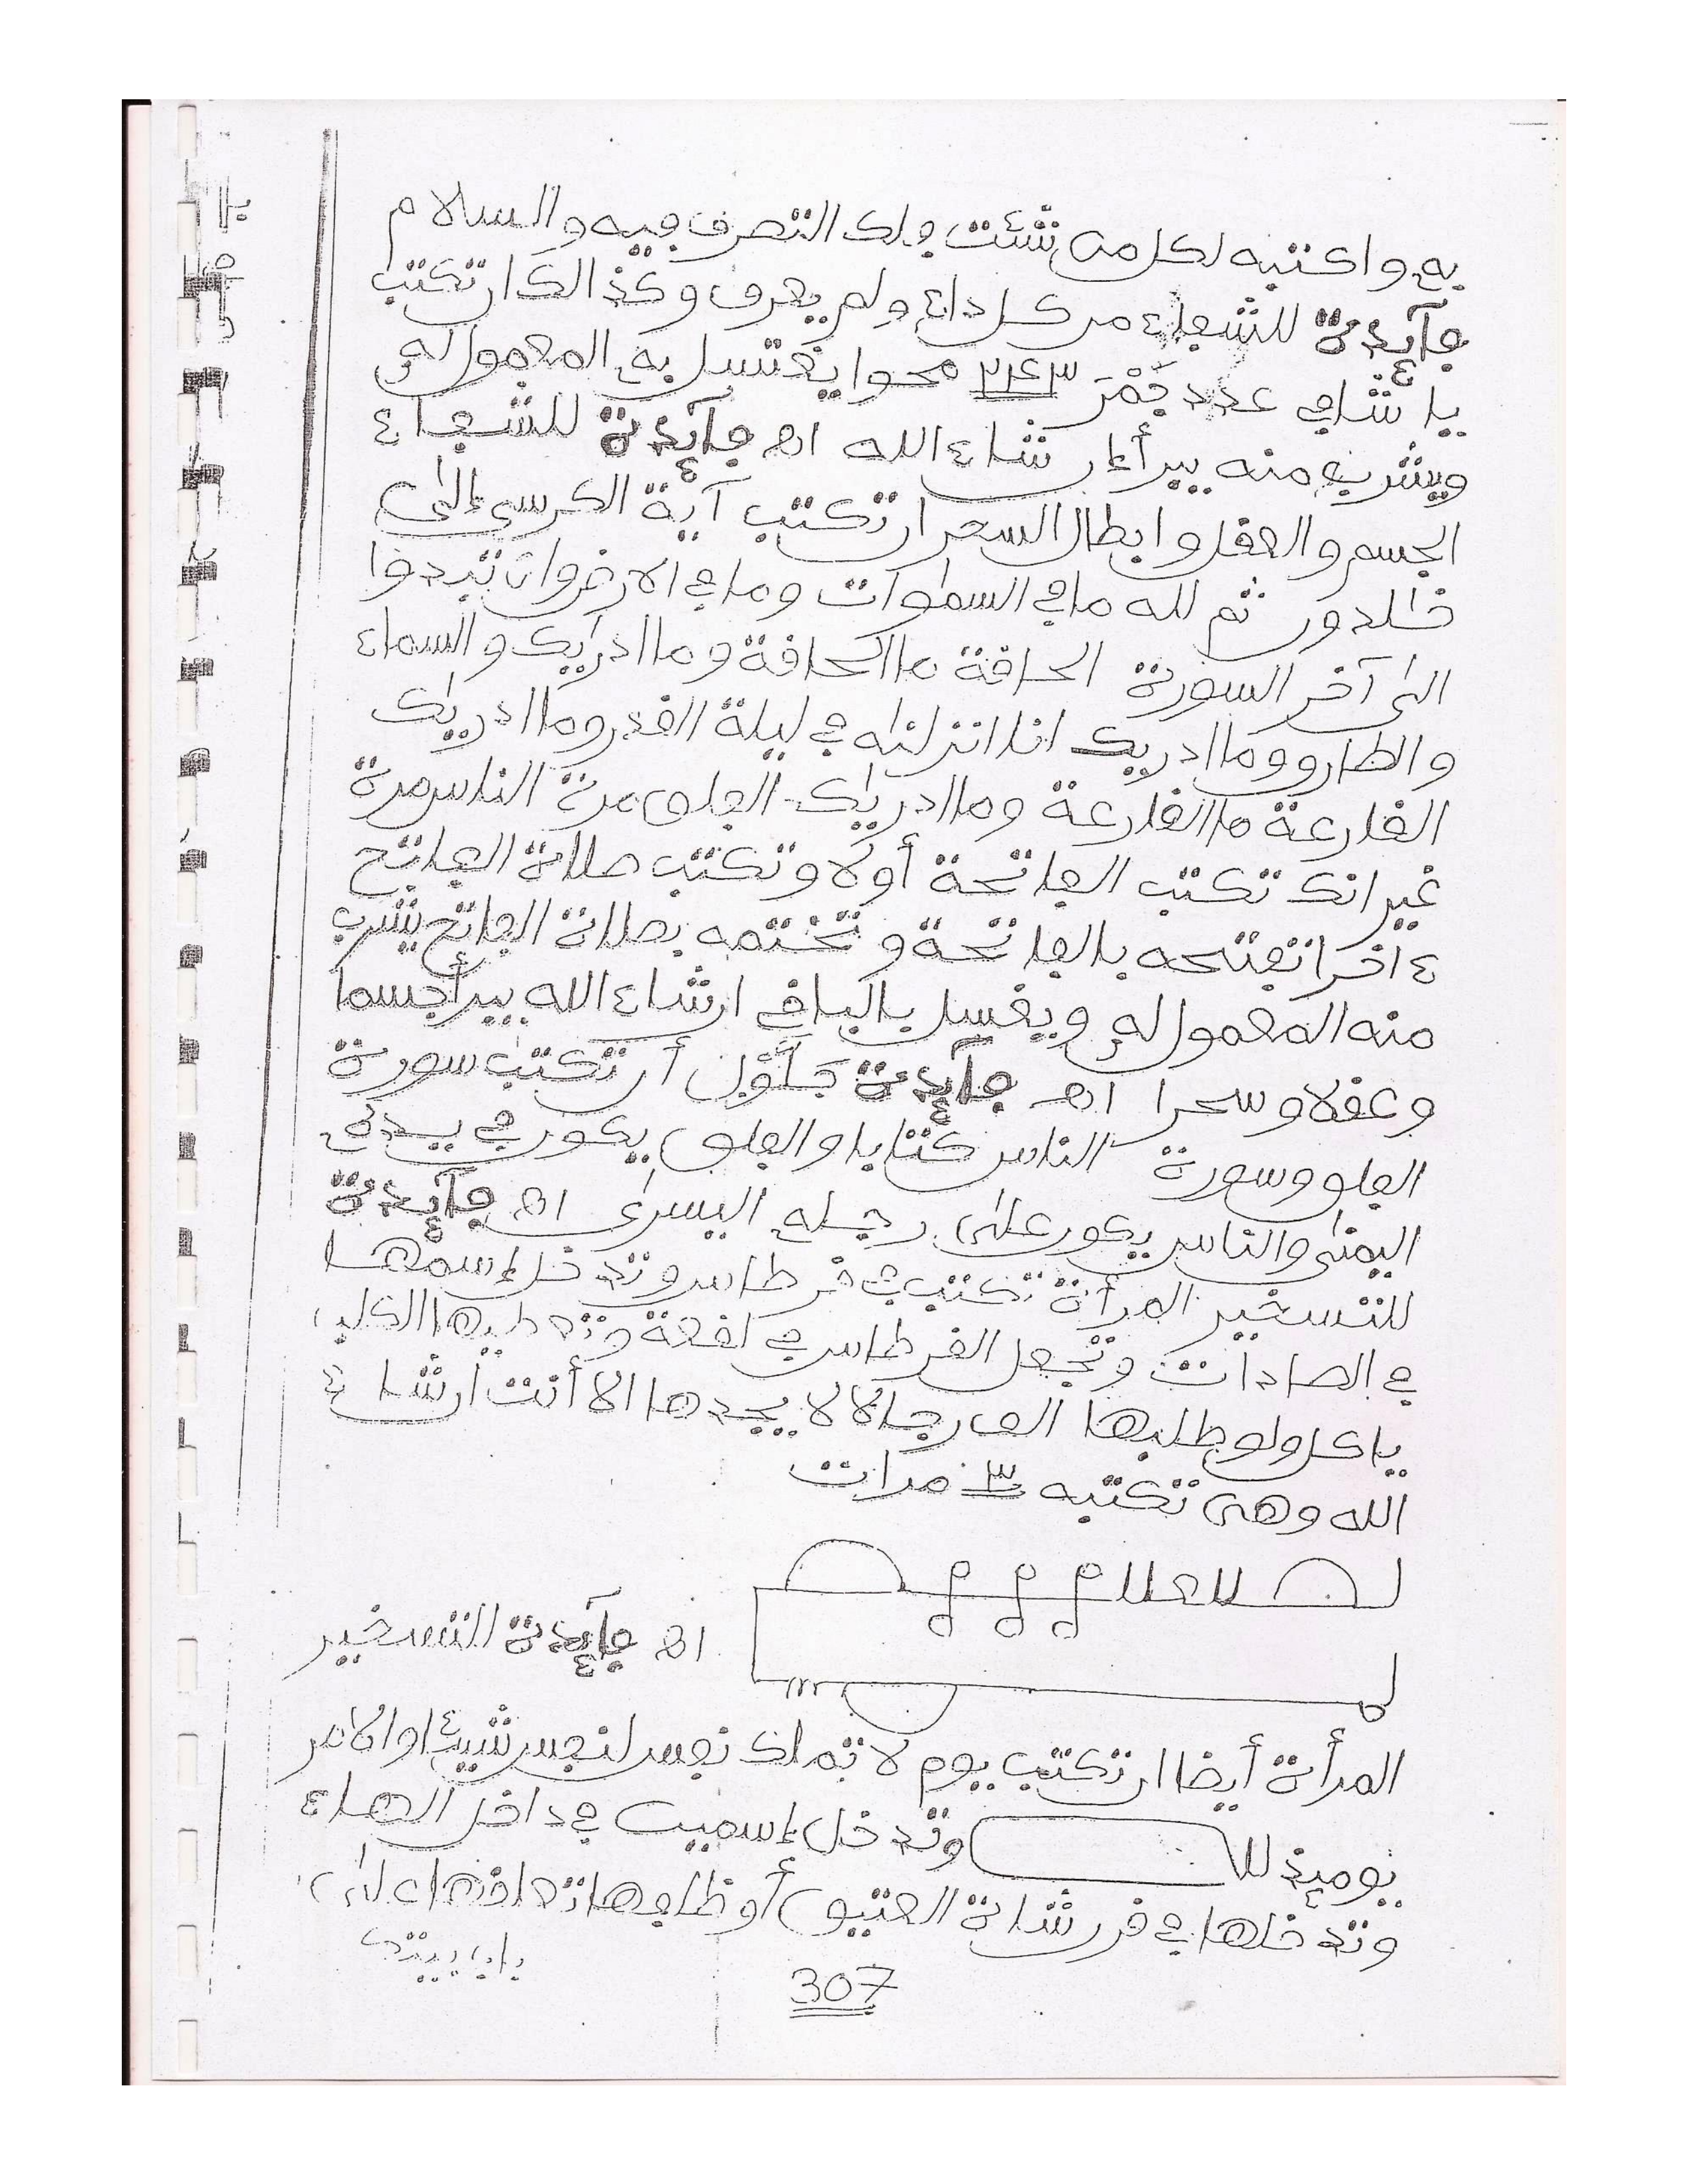 به واكتبه لكل من شئت ولك التصرف فيه والسلام
فآئدة للشفاء من كل داء ولم يعرف وكذالك ان تكتب
يا شافي عدد جَمْرَ ٢٤٣ محوا يغتسل به المعمول له
ويشرب منه يبرأ إن شاء الله اه فآئدة للشفاء
الجسم والعقل وابطال السحر ان تكتب آية الكرسي إلى
خالدون ثم لله ما في السموات وما في الارض وان تبدوا
الى آخر السورة الحاقة ما الحاقة وما ادريك والسماء
والطارق وما ادريك انا انزلنه في ليلة القدر وما ادريك
القارعة ما القارعة وما ادريك الفلق مرة الناس مرة
غير انك تكتب الفاتحة أولا وتكتب صلاة الفاتح
ءاخرا تفتتحه بالفاتحة وتختمه بصلاة الفاتح يشرب
منه المعمول له ويغسل بالباقي ان شاء الله يبرأ جسما
وعقلا وسحرا اه فآئدة أن تكتب سورة
الفلق وسورة الناس كتابا والفلق يكون في يده
اليمنى والناس يكون على رجله اليسرى اه فآئدة
للتسخير المرأة تكتب في قرطاس وتدخل إسمها
في الصادات وتجعل القرطاس في لقمة وتعطيها الكلب
ياكل ولو طلبها الف رجالا لا يجدها الا أنت ان شاء
الله وهى تكتبه ٣ مرات
اه فآئدة للتسخير
المرأة أيضا ان تكتب يوم لا تملك نفس لنفس شيئا والامر
يومئذ لله وتدخل إسمين في داخل الهاء
وتدخلها في قرشاة العتيق أو ظلفها تعلقها على
307